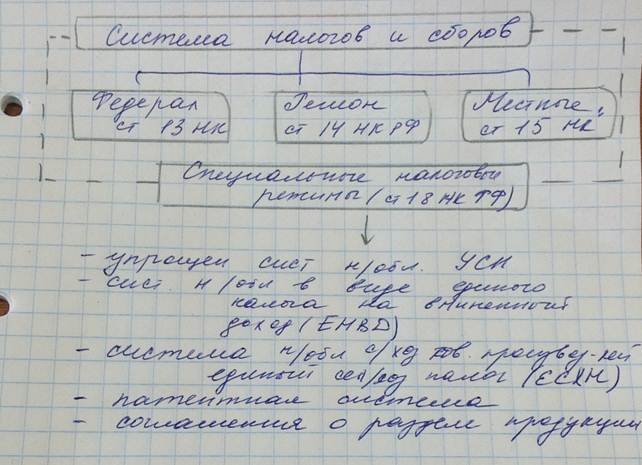 Система налогов и сборов
Федерал
ст 13 НК
Регион
ст 14 НК РФ
Местные
ст 15 НК
Специальные налоговый
режимы (ст 18 НК РФ)
- упрощен сист н/обл. УСН
- сист. н/обл в виде единого
налога на вминенный
доход (ЕНВД)
- система н/обл с/хоз тов. производ-лей
единый сел/хоз налог (ЕСХН)
- патентная система
- соглашения о разделе продукции